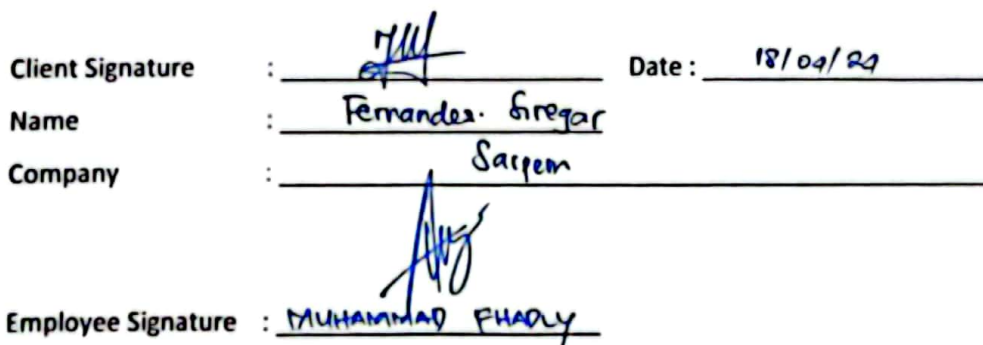 Client Signature : Date : 18/04/24
Name : Fernandes. Siregar
Company : Saipem
Employee Signature : MUHAMMAD FHADLY